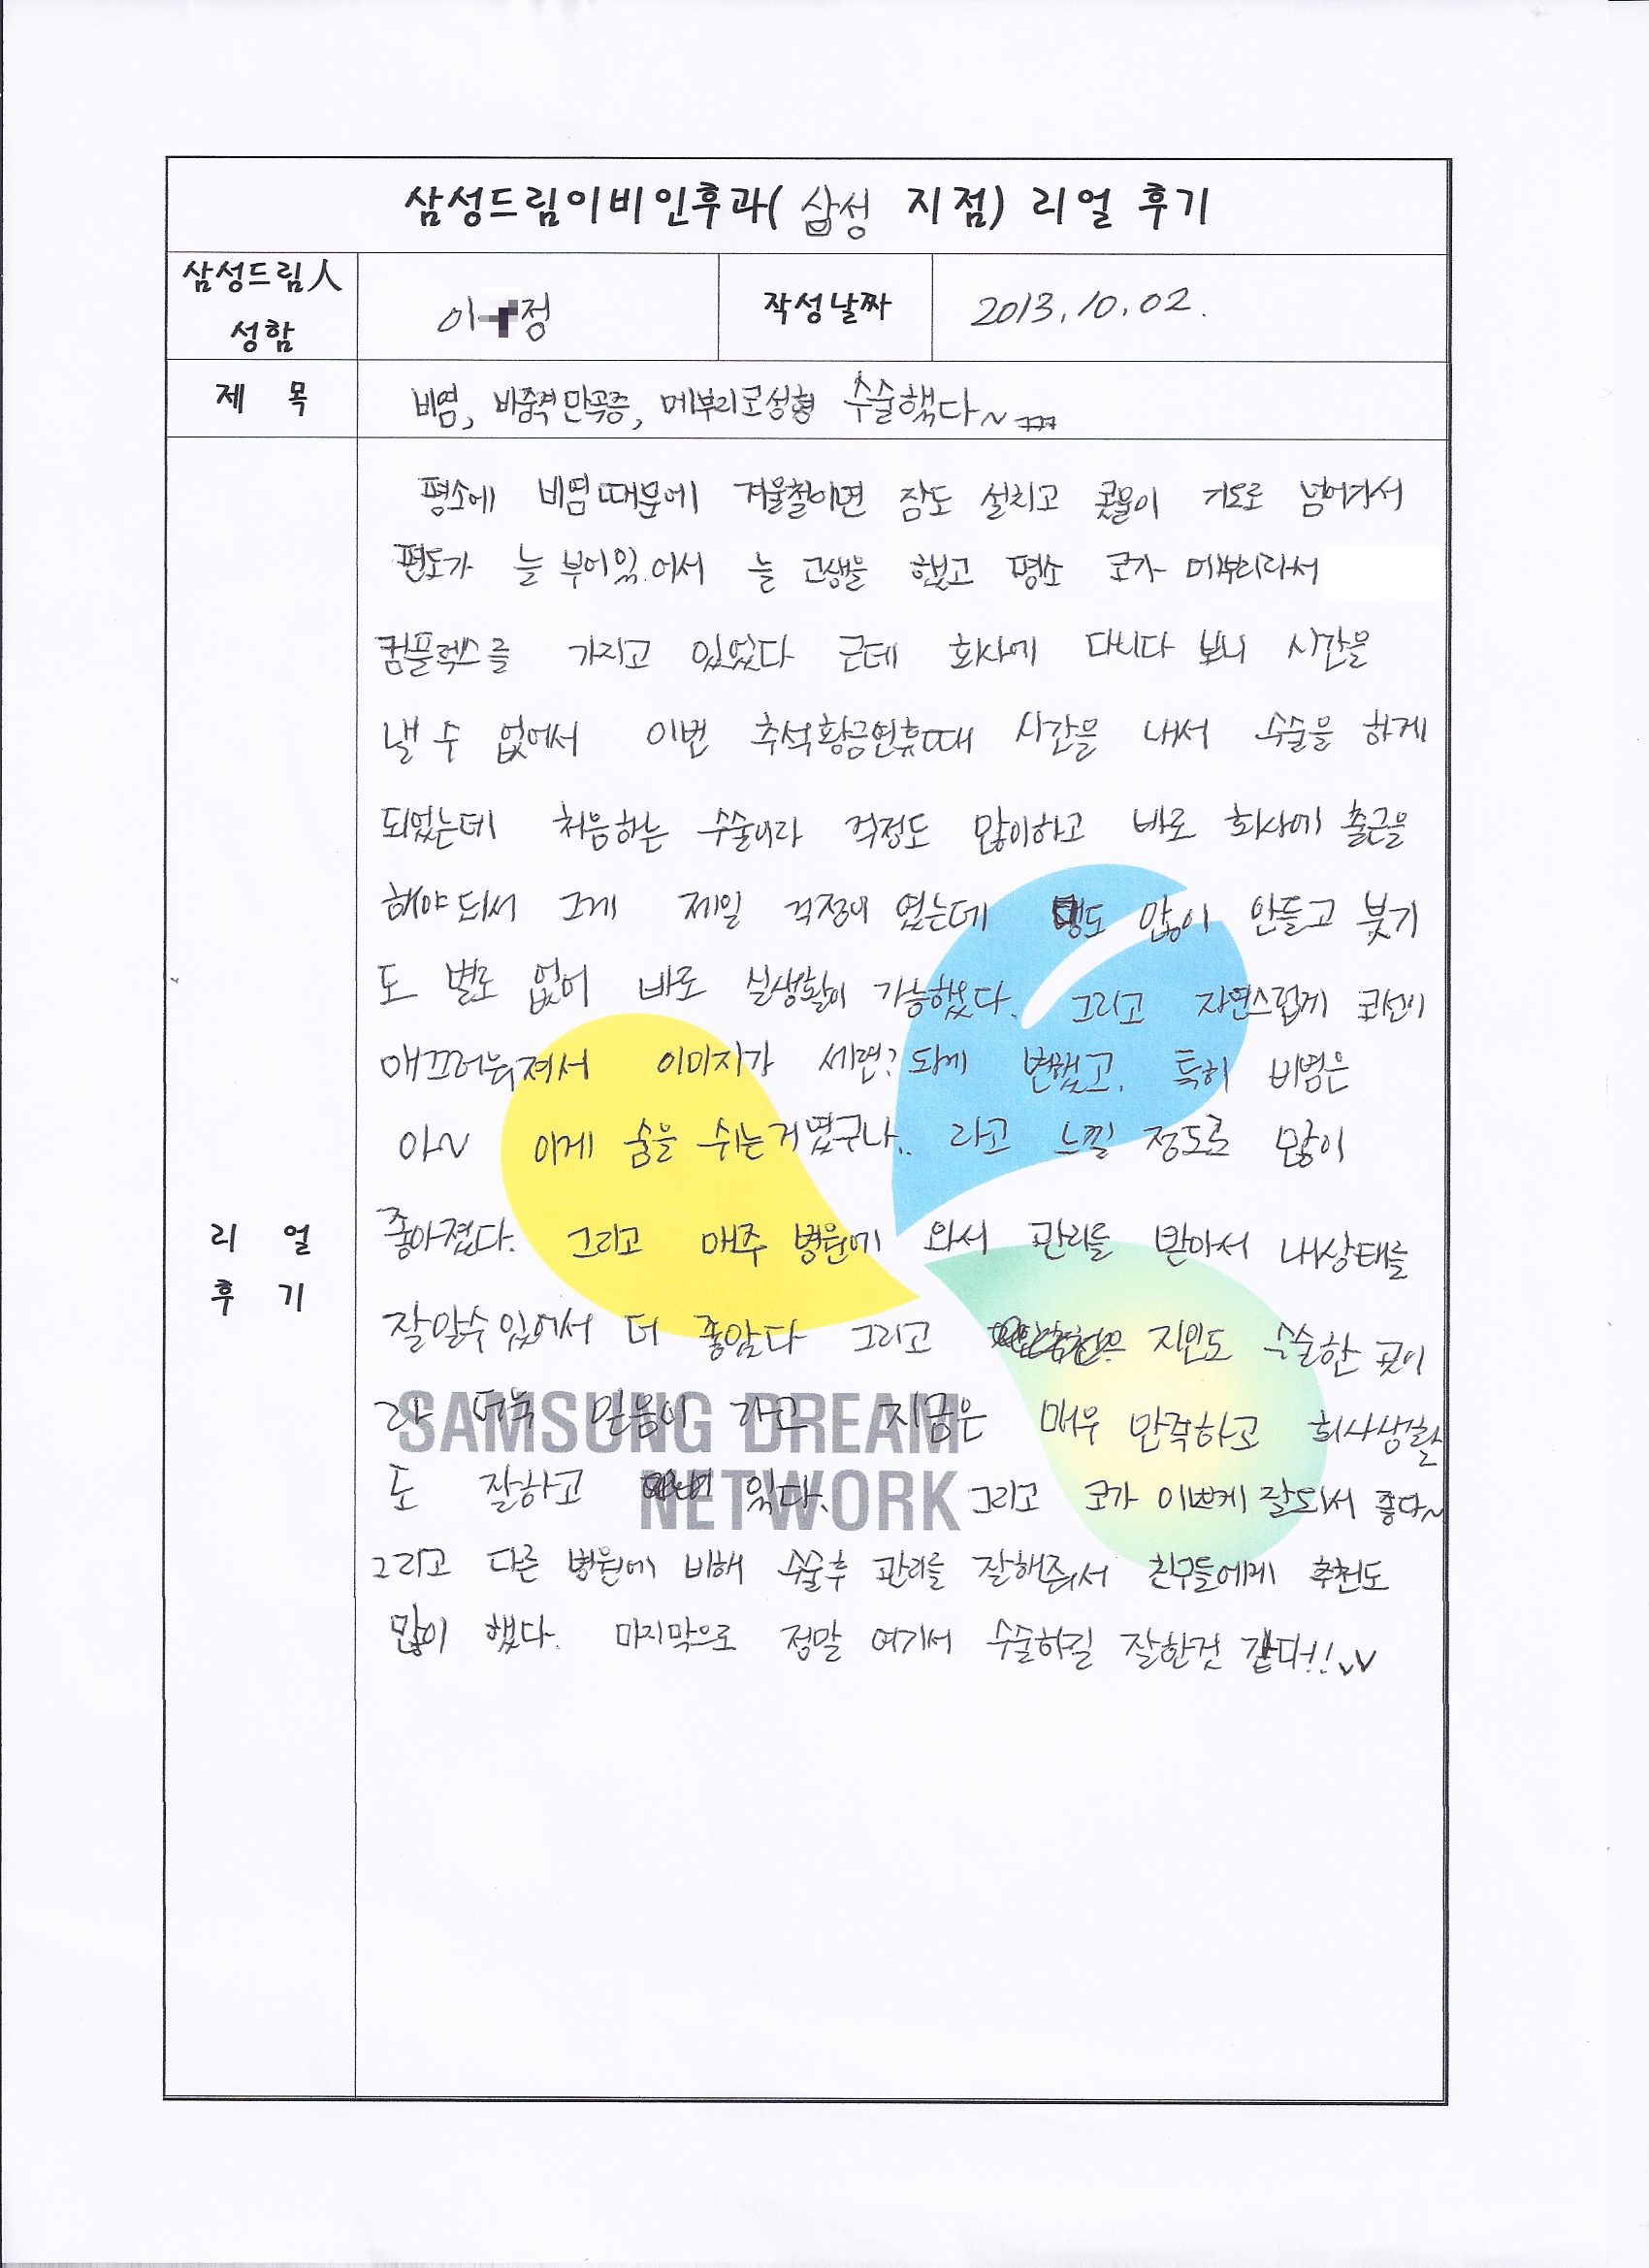 삼성드림이비인후과( 삼성 지점) 리얼 후기
삼성드림人
성함
이 정
작성날짜
2013.10.02.
제 목
비염, 비중격만곡증, 메부리코성형 수술했다~ ㅋㅋㅋ
평소에 비염때문에 겨울철이면 잠도 설치고 콧물이 기도로 넘어가서
편도가 늘 부어있어서 늘 고생을 했고 평소 코가 메부리라서
컴플렉스를 가지고 있었다 근데 회사에 다니다 보니 시간을
낼 수 없어서 이번 추석황금연휴때 시간을 내서 수술을 하게
되었는데 처음하는 수술이라 걱정도 많이하고 바로 회사에 출근을
해야되서 그게 제일 걱정이 였는데 멍도 많이 안들고 붓기
도 별로 없어 바로 실생활이 가능했다. 그리고 자연스럽게 코선이
매끄러워져서 이미지가 세련?되게 변했고. 특히 비염은
아~ 이게 숨을 쉬는거였구나.. 라고 느낄 정도로 많이
좋아졌다. 그리고 매주 병원에 와서 관리를 받아서 내상태를
잘알수있어서 더 좋았다 그리고 지인도 수술한 곳이
라 더욱 믿음이 가고 지금은 매우 만족하고 회사생활
도 잘하고 있다. 그리고 코가 이쁘게 잘되서 좋다~
그리고 다른 병원에 비해 수술후 관리를 잘해줘서 친구들에게 추천도
많이 했다. 마지막으로 정말 여기서 수술하길 잘한것 같다!! vv
리 얼
후 기
SAMSUNG DREAM
NETWORK